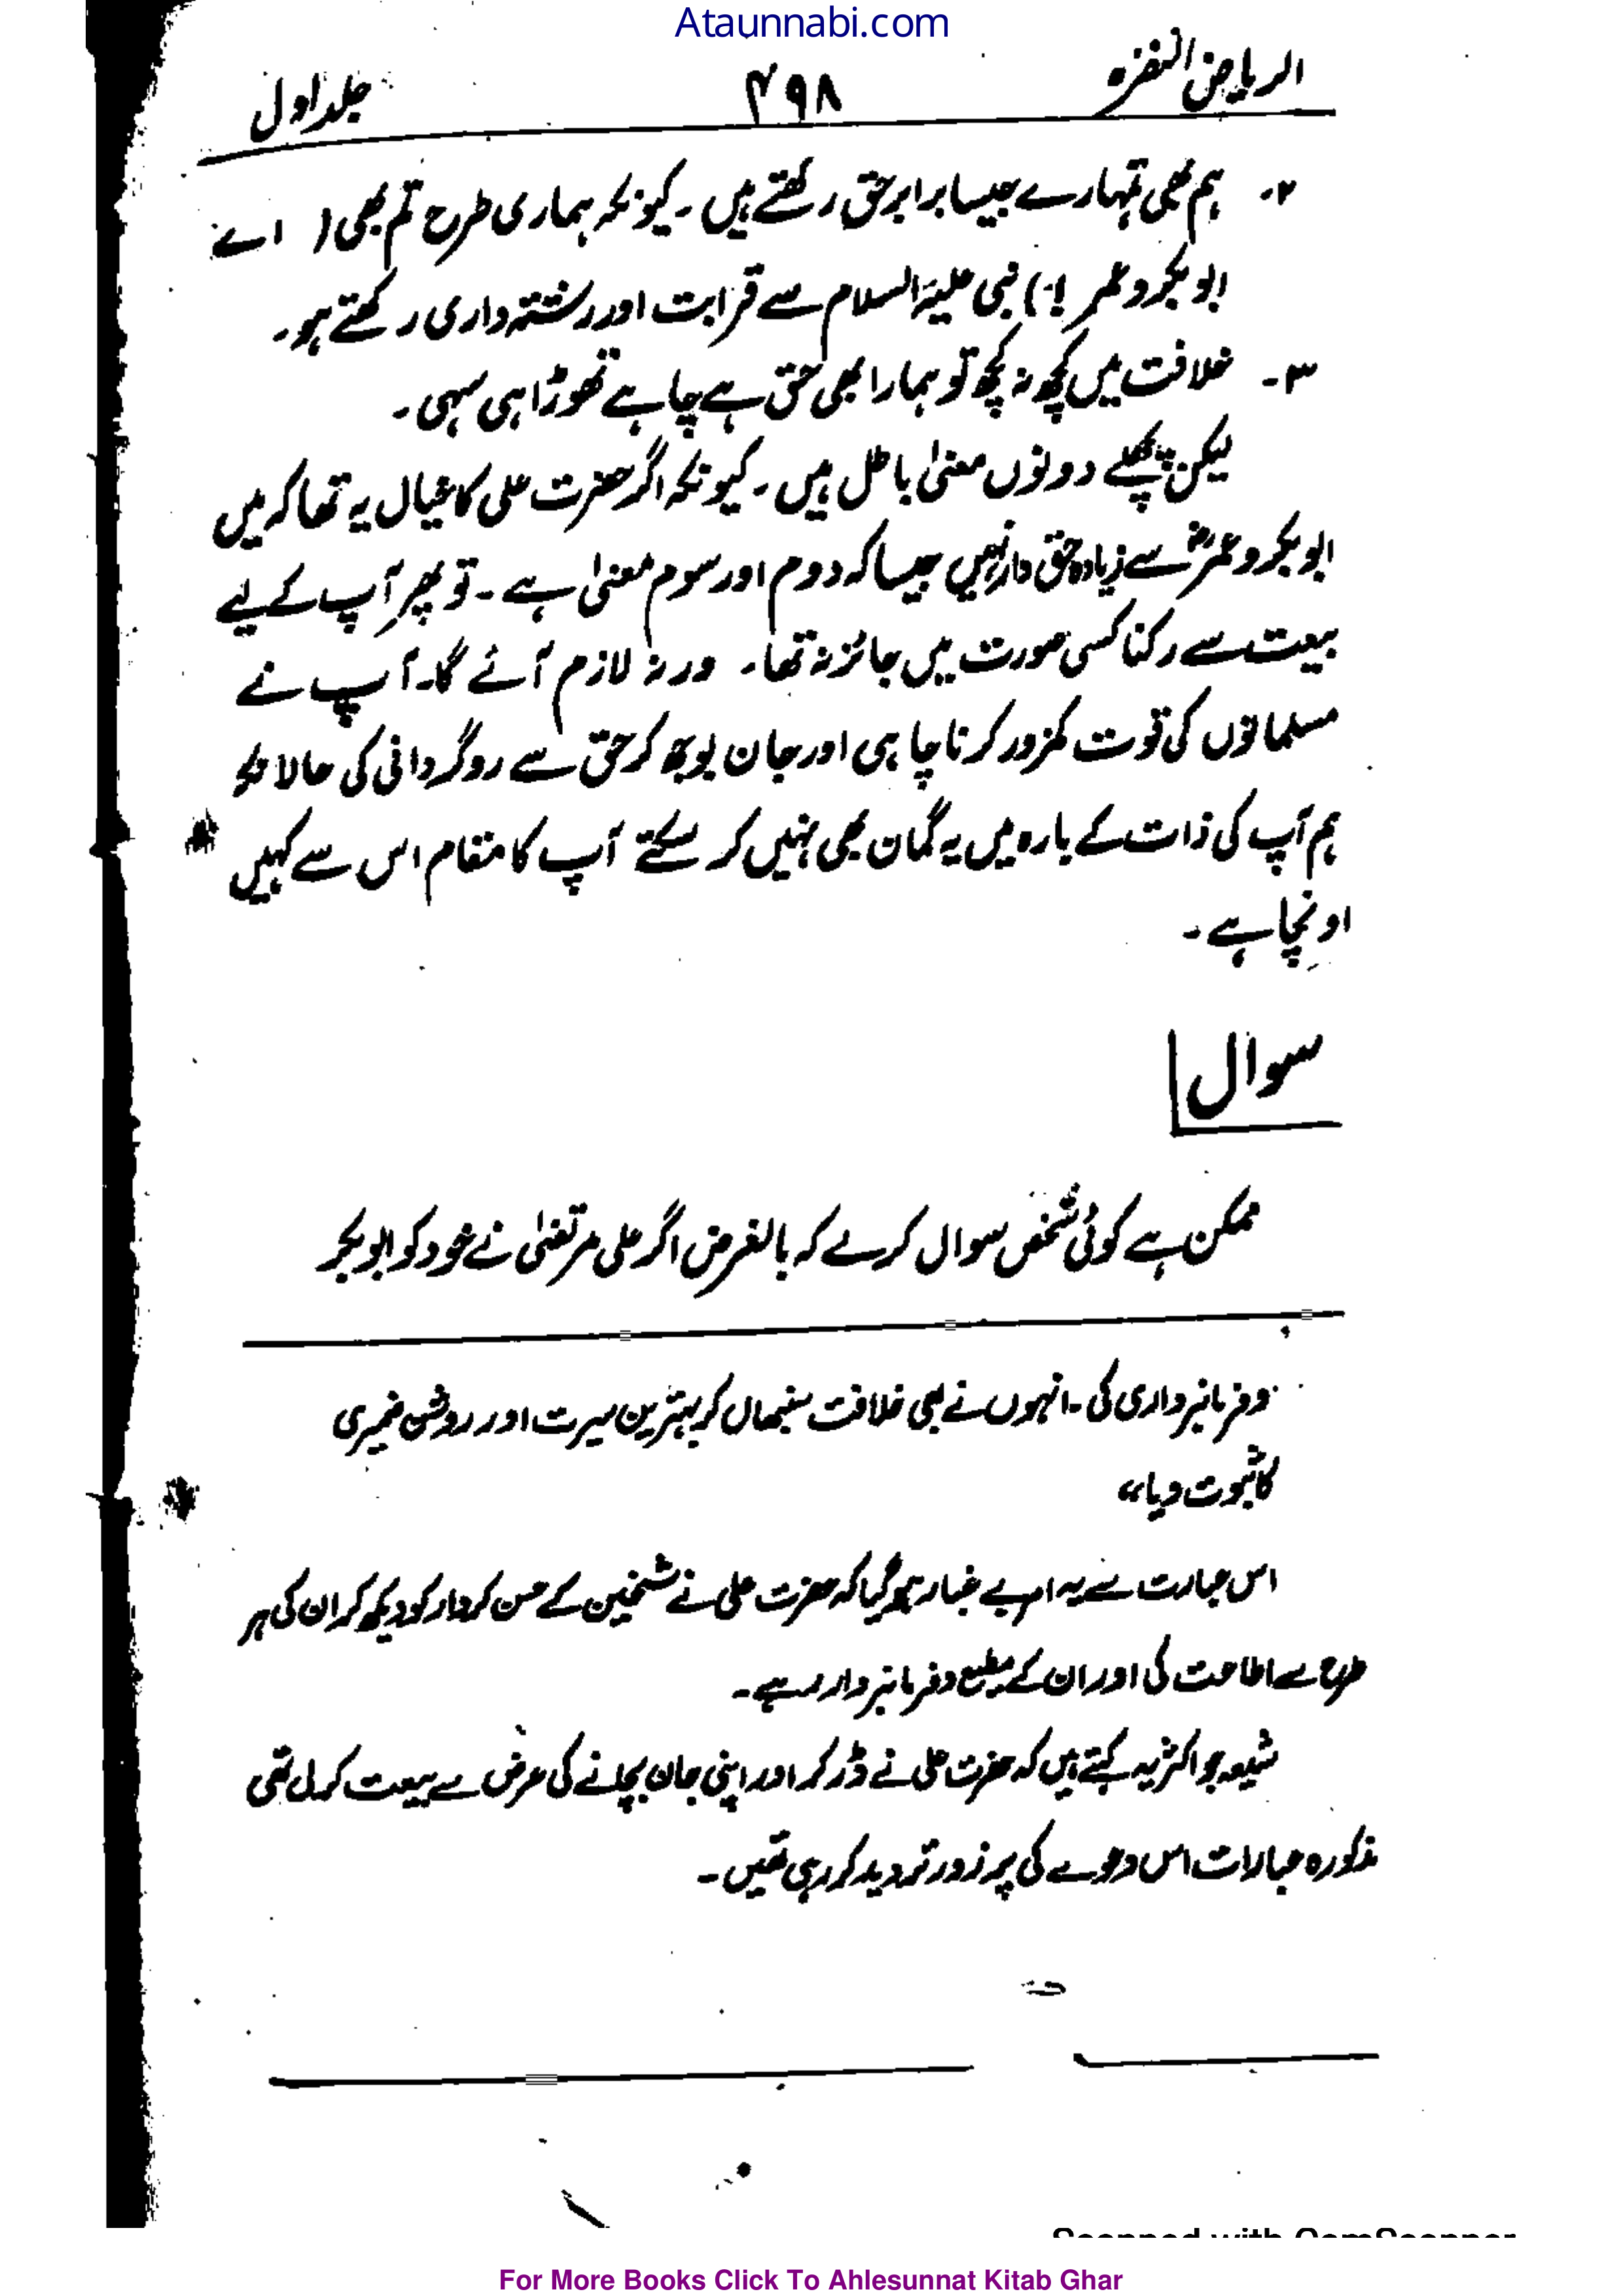 Ataunnabi.com
الریاض النضرہ ۴۹۸ جلد اول
۲۔ ہم بھی تمہارے جیسا برابر حق رکھتے ہیں۔ کیونکہ ہماری طرح تم بھی (اے
ابوبکر و عمر!) نبی علیہ السلام سے قرابت اور رشتہ داری رکھتے ہو۔
۳۔ خلافت میں کچھ نہ کچھ تو ہمارا بھی حق ہے چاہے تھوڑا ہی سہی۔
لیکن پچھلے دونوں معنیٰ باطل ہیں۔ کیونکہ اگر حضرت علی کا خیال یہ تھا کہ میں
ابوبکر و عمرؓ سے زیادہ حق دار نہیں جیسا کہ دوم اور سوم معنیٰ ہے۔ تو پھر آپ کے لیے
بیعت سے رکنا کسی صورت میں جائز نہ تھا۔ ورنہ لازم آئے گا۔ آپ نے
مسلمانوں کی قوت کمزور کرنا چاہی اور جان بوجھ کر حق سے روگردانی کی حالانکہ
ہم آپ کی ذات کے بارہ میں یہ گمان بھی نہیں کر سکتے آپ کا مقام اس سے کہیں
اونچا ہے۔
سوال
ممکن ہے کوئی شخص سوال کرے کہ بالفرض اگر علی مرتضیٰ نے خود کو ابوبکر
وفرمانبرداری کی۔ انہوں نے بھی خلافت سنبھال کر بہترین سیرت اور روشن ضمیری
کا ثبوت دیا،،
اس عبارت سے یہ امر بے غبار ہو گیا کہ حضرت علی نے شیخین کے حسن کردار کو دیکھ کر ان کی ہر
طرح سے اطاعت کی اور ان کے مطیع و فرمانبردار رہے۔
شیعہ جو اکثر یہ کہتے ہیں کہ حضرت علی نے ڈر کر اور اپنی جان بچانے کی غرض سے بیعت کر لی تھی
مذکورہ عبارات اس دعوے کی پرزور تردید کر رہی تھیں۔
Scanned with CamScanner
For More Books Click To Ahlesunnat Kitab Ghar